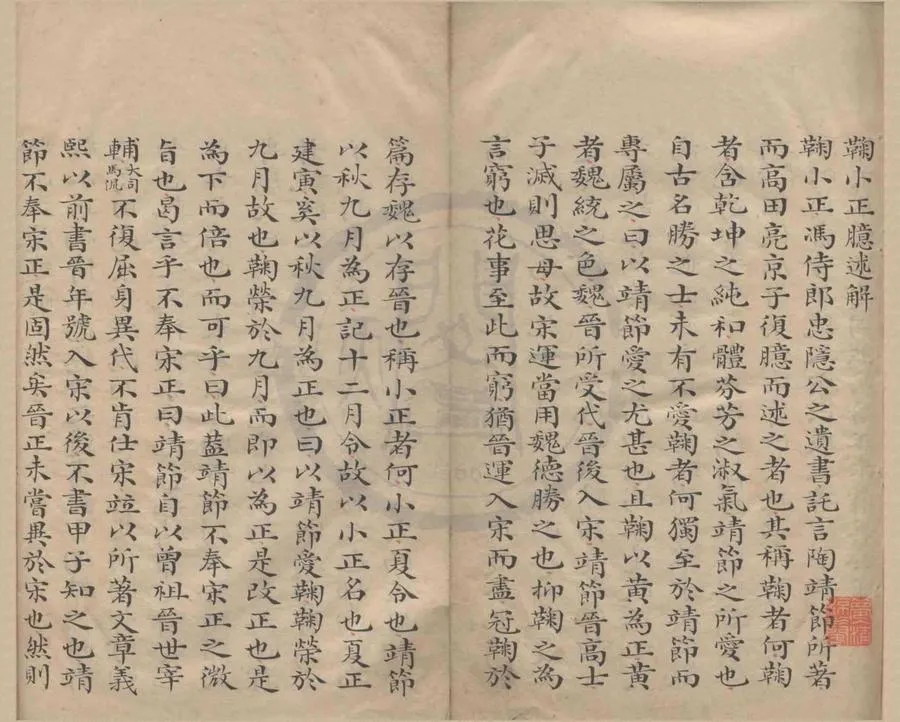 鞠小正臆述解
鞠小正馮侍郎忠隱公之遺書託言陶靖節所著
而高田亮京子復臆而述之者也其稱鞠者何鞠
者含乾坤之純和體芬芳之淑氣靖節之所愛也
自古名勝之士未有不愛鞠者何獨至於靖節而
專屬之曰以靖節愛之尤甚也且鞠以黃為正黃
者魏統之色魏晉所受代晉後入宋靖節晉高士
子滅則思母故宋運當用魏德勝之也抑鞠之為
言窮也花事至此而窮猶晉運入宋而盡冠鞠於
篇存魏以存晉也稱小正者何小正夏令也靖節
以秋九月為正記十二月令故以小正名也夏正
建寅奚以秋九月為正也曰以靖節愛鞠鞠榮於
九月故也鞠榮於九月而即以為正是改正也是
為下而倍也而可乎曰此葢靖節不奉宋正之微
旨也曷言乎不奉宋正曰靖節自以曾祖晉世宰
輔大司馬侃不復屈身異代不肯仕宋竝以所著文章義
熙以前書晉年號入宋以後不書甲子知之也靖
節不奉宋正是固然矣晉正未嘗異於宋也然則